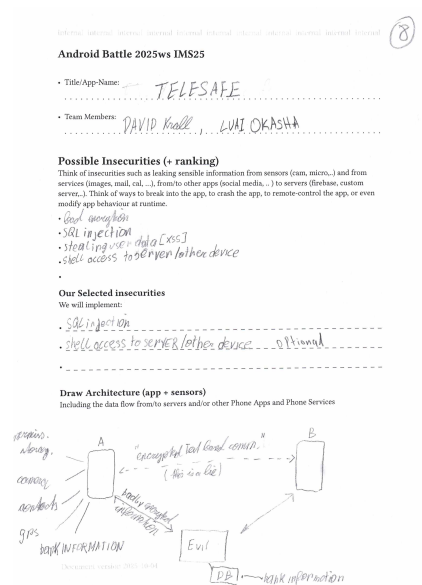 internal internal internal internal internal internal internal internal internal internal
8
Android Battle 2025ws IMS25
• Title/App-Name: TELESAFE
• Team Members: DAVID Krall, LUAI OKASHA
Possible Insecurities (+ ranking)
Think of insecurities such as leaking sensible information from sensors (cam, micro,..) and from
services (images, mail, cal, ...), from/to other apps (social media, .. ) to servers (firebase, custom
server,..). Think of ways to break into the app, to crash the app, to remote-control the app, or even
modify app behaviour at runtime.
• bad encryption
• SQL injection
• stealing user data [XSS]
• shell access to server/other device
•
Our Selected insecurities
We will implement:
• SQL injection
• shell access to SERVER/other device optional
•
Draw Architecture (app + sensors)
Including the data flow from/to servers and/or other Phone Apps and Phone Services
A
B
"encrypted Text based comm."
(this is a lie)
camera
contacts
gps
bank INFORMATION
badly encrypted
information
Evil
DB
bank information